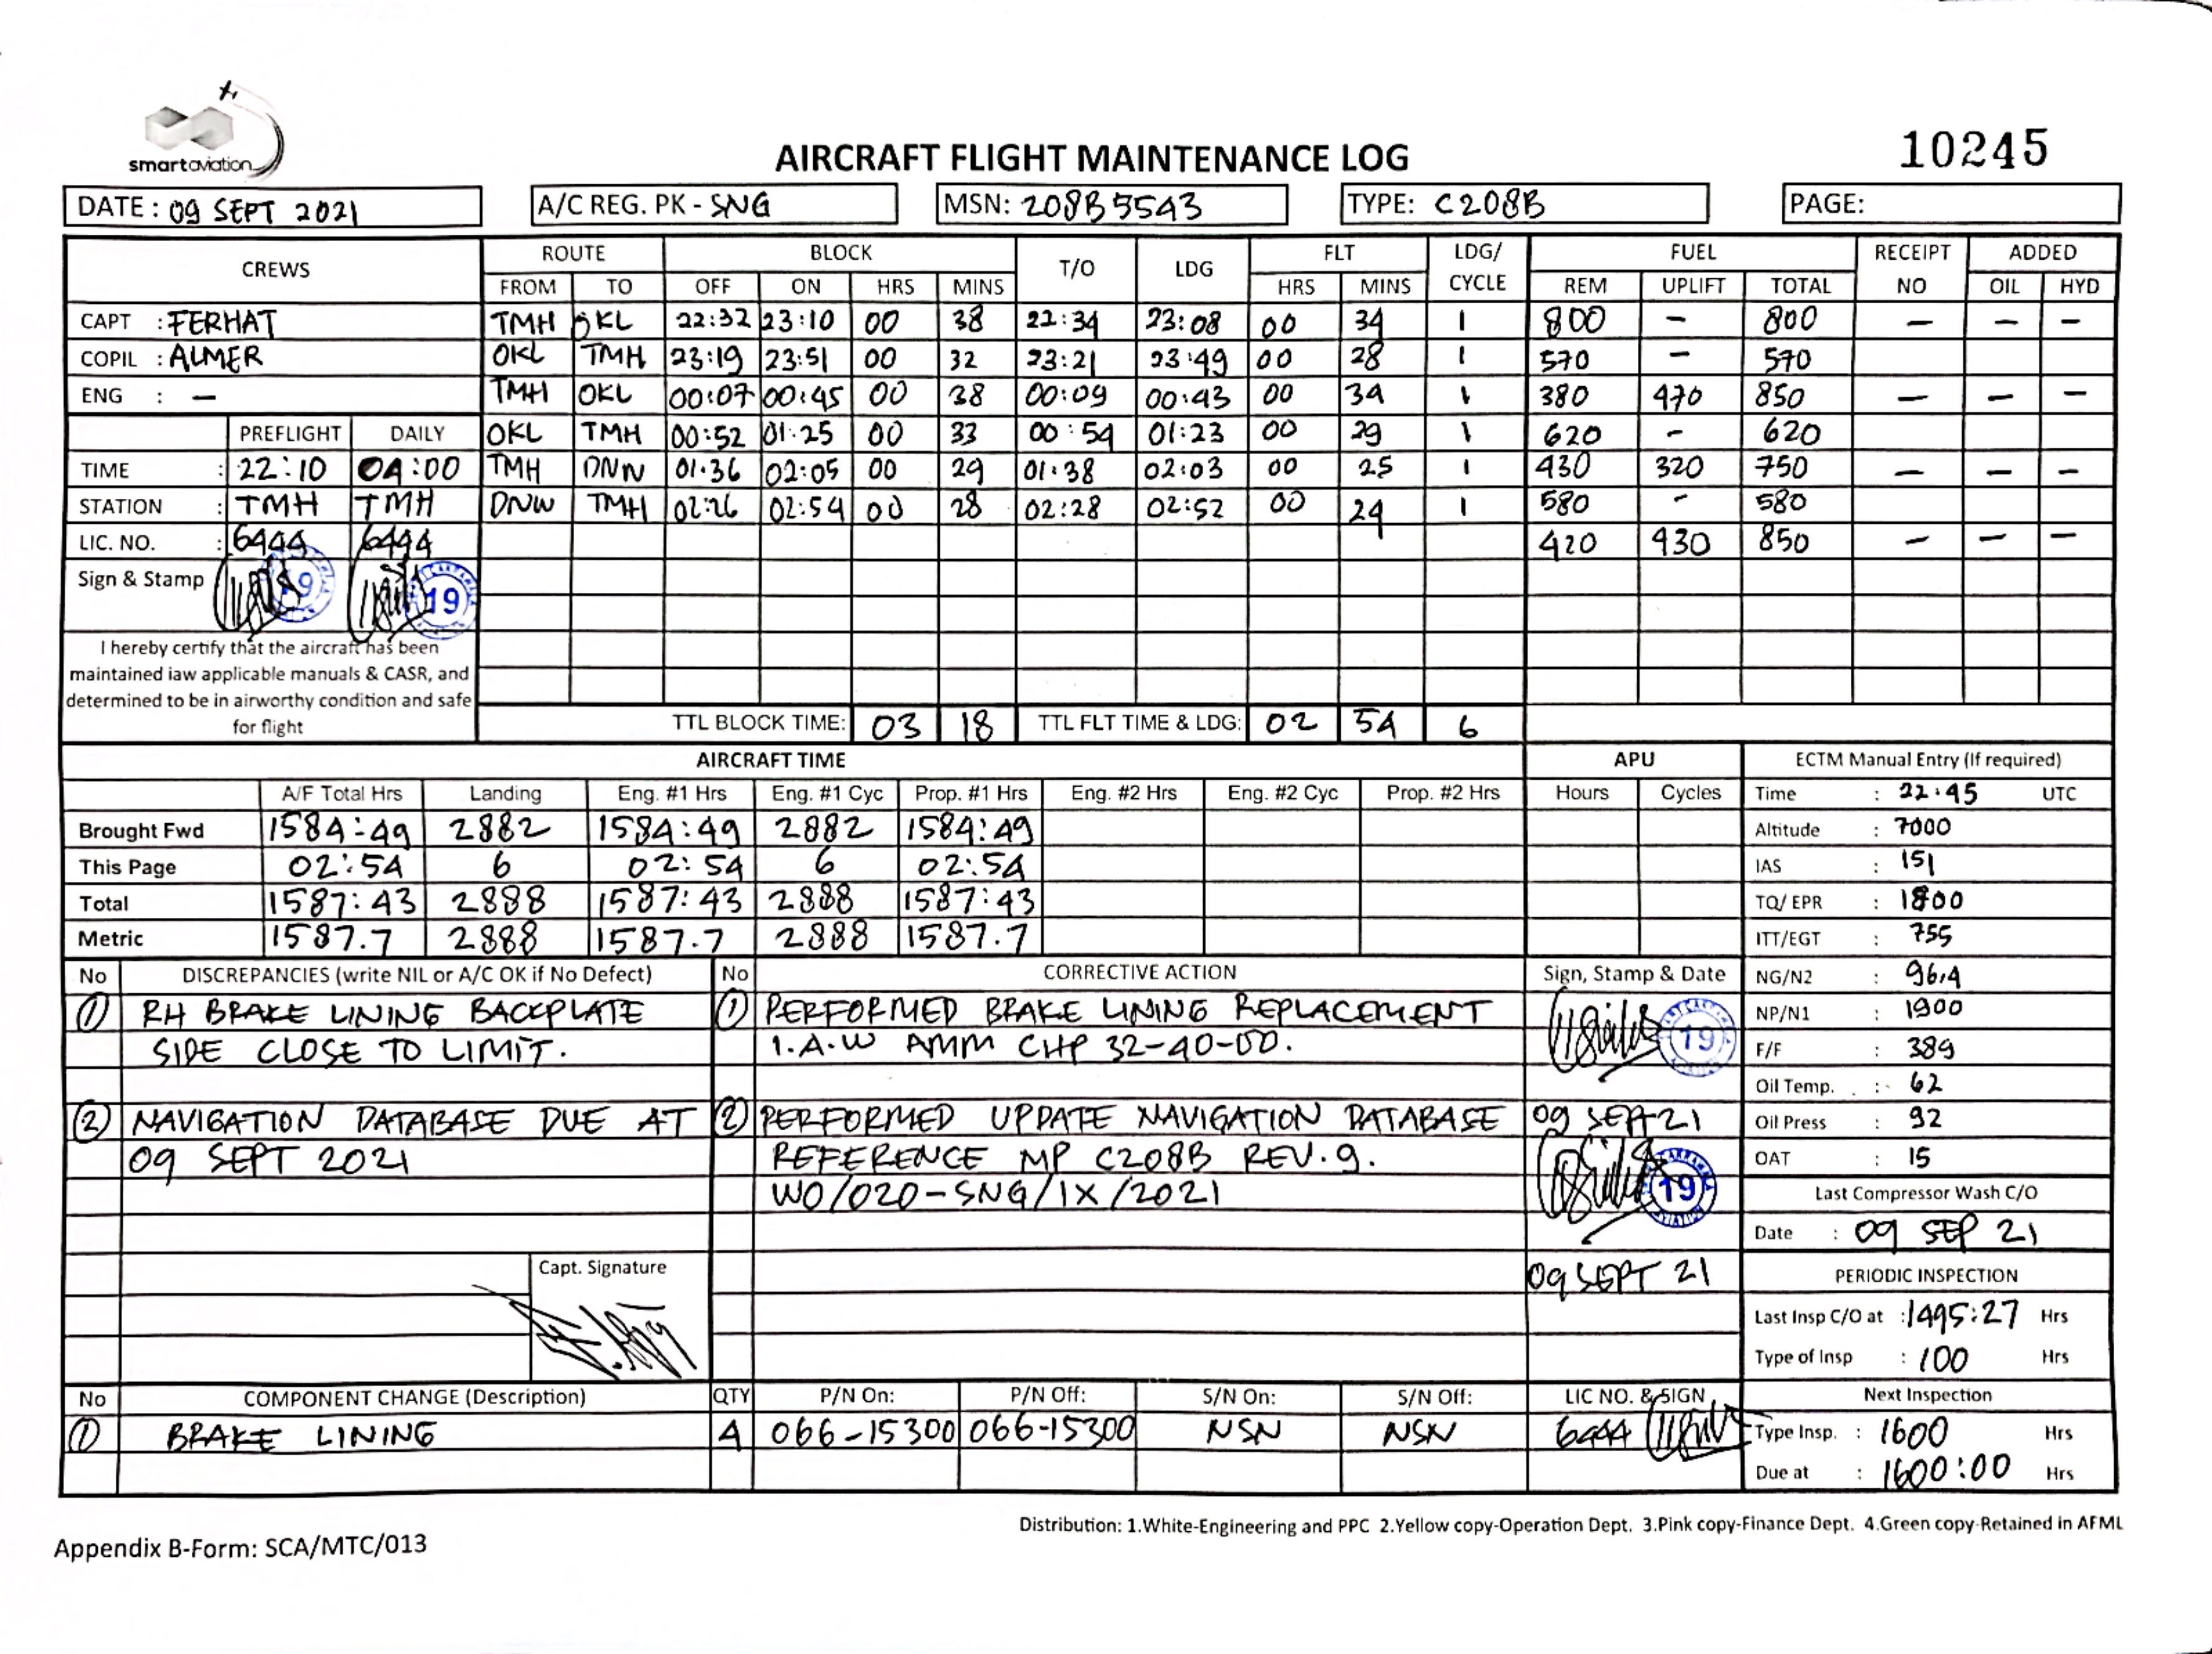 smart aviation
AIRCRAFT FLIGHT MAINTENANCE LOG
10245
DATE : 09 SEPT 2021
A/C REG. PK - SNG
MSN: 208B5543
TYPE: C208B
PAGE:
CREWS ROUTE BLOCK T/O LDG FLT LDG/ CYCLE FUEL RECEIPT NO ADDED
FROM TO OFF ON HRS MINS HRS MINS REM UPLIFT TOTAL OIL HYD
CAPT : FERHAT TMH OKL 22:32 23:10 00 38 22:34 23:08 00 34 1 800 - 800 - - -
COPIL : ALMER OKL TMH 23:19 23:51 00 32 23:21 23:49 00 28 1 570 - 570
ENG : - TMH OKL 00:07 00:45 00 38 00:09 00:43 00 34 1 380 470 850 - - -
PREFLIGHT DAILY OKL TMH 00:52 01:25 00 33 00:54 01:23 00 29 1 620 - 620
TIME : 22:10 04:00 TMH DNW 01:36 02:05 00 29 01:38 02:03 00 25 1 430 320 750 - - -
STATION : TMH TMH DNW TMH 02:26 02:54 00 28 02:28 02:52 00 24 1 580 - 580
LIC. NO. : 6444 6444 420 430 850 - - -
Sign & Stamp 19 19
I hereby certify that the aircraft has been
maintained iaw applicable manuals & CASR, and
determined to be in airworthy condition and safe
for flight
TTL BLOCK TIME: 03 18 TTL FLT TIME & LDG: 02 54 6
AIRCRAFT TIME APU
A/F Total Hrs Landing Eng. #1 Hrs Eng. #1 Cyc Prop. #1 Hrs Eng. #2 Hrs Eng. #2 Cyc Prop. #2 Hrs Hours Cycles
Brought Fwd 1584:49 2882 1584:49 2882 1584:49
This Page 02:54 6 02:54 6 02:54
Total 1587:43 2888 1587:43 2888 1587:43
Metric 1587.7 2888 1587.7 2888 1587.7
ECTM Manual Entry (If required)
Time : 22:45 UTC
Altitude : 7000
IAS : 151
TQ/ EPR : 1800
ITT/EGT : 755
NG/N2 : 96.4
NP/N1 : 1900
F/F : 389
Oil Temp. : 62
Oil Press : 92
OAT : 15
Last Compressor Wash C/O
Date : 09 SEP 21
PERIODIC INSPECTION
Last Insp C/O at : 1495:27 Hrs
Type of Insp : 100 Hrs
Next Inspection
Type Insp. : 1600 Hrs
Due at : 1600:00 Hrs
No DISCREPANCIES (write NIL or A/C OK if No Defect)
① RH BRAKE LINING BACKPLATE
SIDE CLOSE TO LIMIT.
② NAVIGATION DATABASE DUE AT
09 SEPT 2021
Capt. Signature
No CORRECTIVE ACTION
① PERFORMED BRAKE LINING REPLACEMENT
I.A.W AMM CHP 32-40-00.
② PERFORMED UPDATE NAVIGATION DATABASE
REFERENCE MP C208B REV.9.
WO/020-SNG/IX/2021
Sign, Stamp & Date
19
09 SEPT 21
19
09 SEPT 21
No COMPONENT CHANGE (Description) QTY P/N On: P/N Off: S/N On: S/N Off: LIC NO. & SIGN
① BRAKE LINING 4 066-15300 066-15300 NSN NSN 6444
Distribution: 1.White-Engineering and PPC 2.Yellow copy-Operation Dept. 3.Pink copy-Finance Dept. 4.Green copy-Retained in AFML
Appendix B-Form: SCA/MTC/013